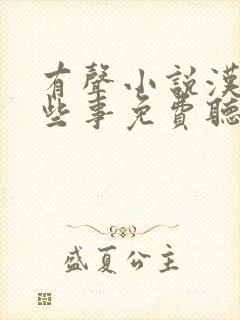 有聲小說漢
些事免費聽
盛夏公主